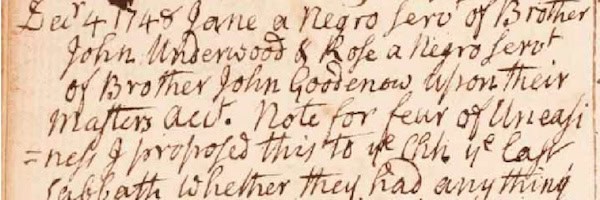 Decr 4 1748 Jane a Negro Servt of Brother
John Underwood & Rose a Negro Servt
of Brother John Goodenow upon their
Masters Acct. Note for fear of Uneasi
=ness I proposed this to ye Chh ye last
Sabbath whether they had anything